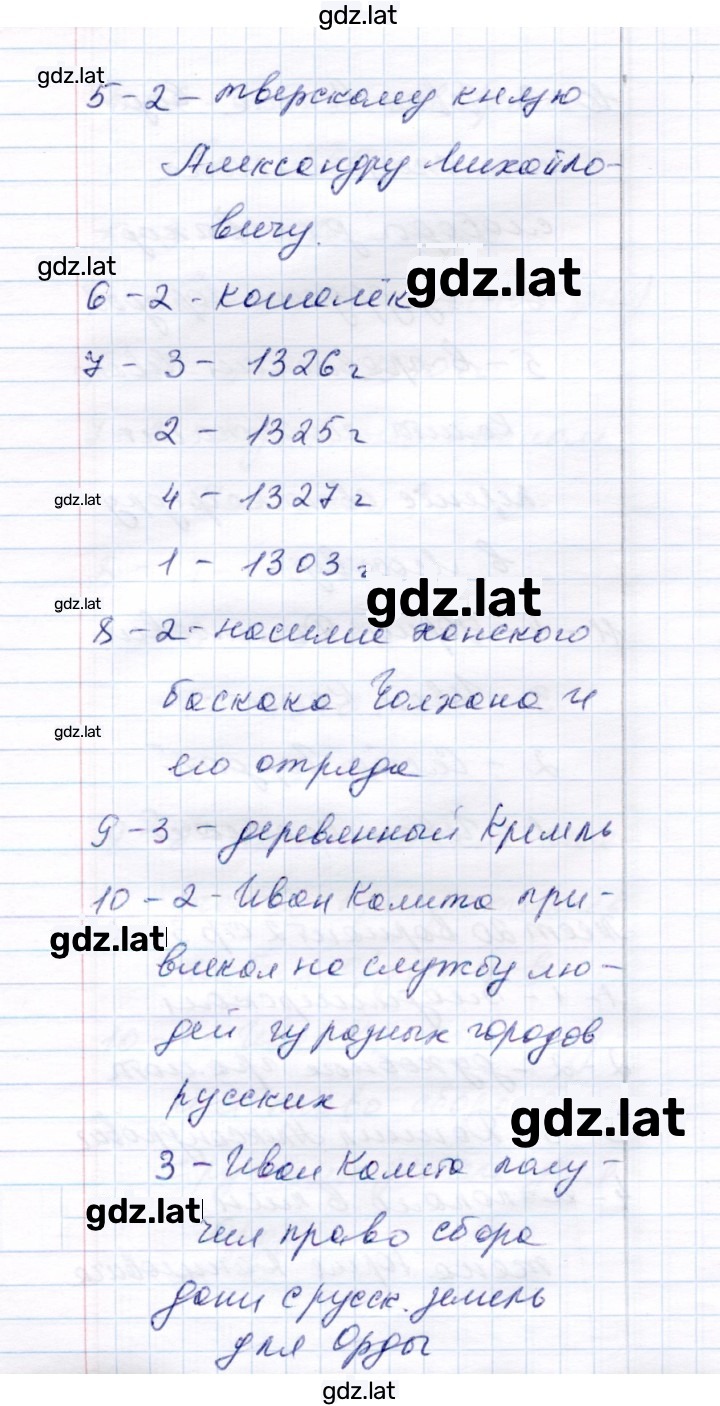 gdz.lat
gdz.lat
5 - 2 - тверскому князю
Александру Михайло-
вичу.
gdz.lat
gdz.lat
6 - 2 - кошелёк
7 - 3 - 1326 г
2 - 1325 г
gdz.lat
4 - 1327 г
1 - 1303 г
gdz.lat
gdz.lat
8 - 2 - насилие ханского
баскака Чолхана и
gdz.lat
его отряда
9 - 3 - деревянный Кремль
10 - 2 - Иван Калита при-
gdz.lat
влекал на службу лю-
дей из разных городов
русских
gdz.lat
3 - Иван Калита полу-
gdz.lat
чил право сбора
дани с русск. земель
для Орды
gdz.lat